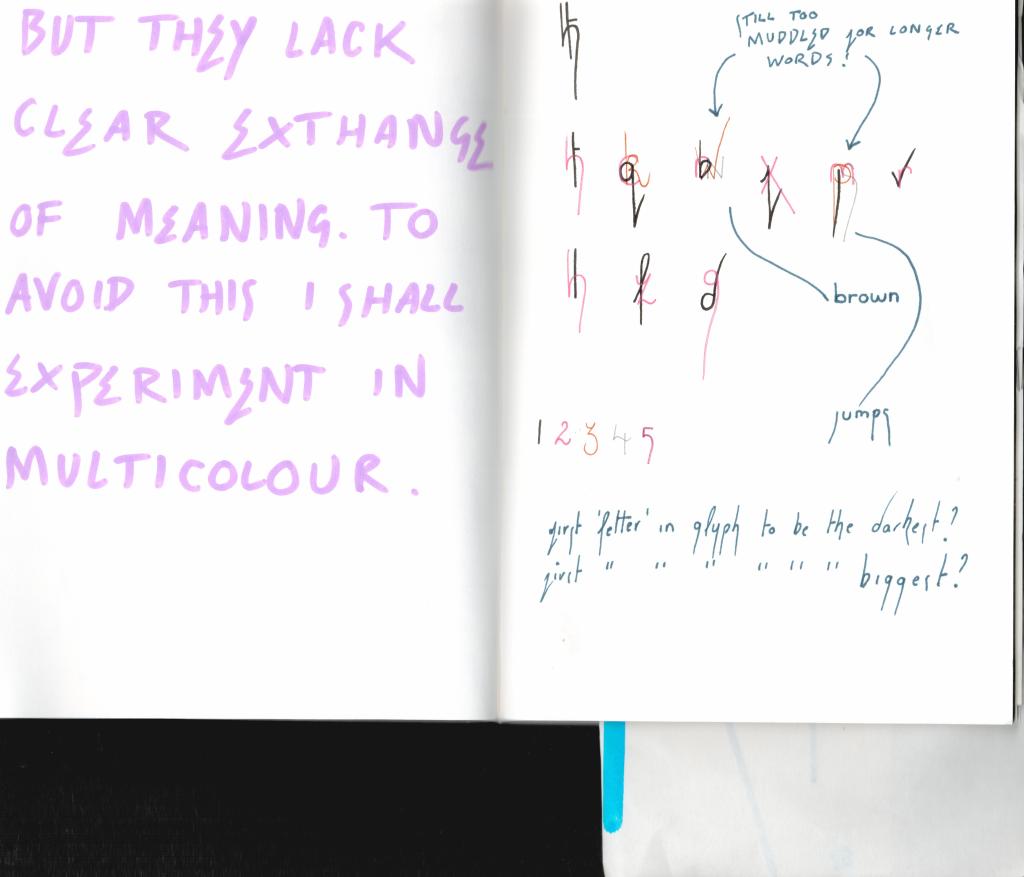 BUT THEY LACK
CLEAR EXTHANGE
OF MEANING. TO
AVOID THIS I SHALL
EXPERIMENT IN
MULTICOLOUR.
STILL TOO
MUDDLED FOR LONGER
WORDS!
brown
jumps
1 2 3 4 5
first 'letter' in glyph to be the darkest?
first " " " " " " biggest?